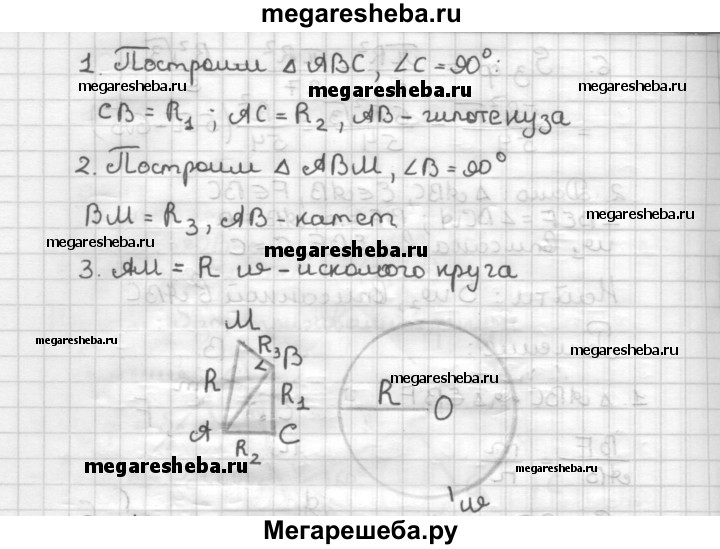 megaresheba.ru
1. Построим △ ABC, ∠C = 90°:
megaresheba.ru megaresheba.ru megaresheba.ru
CB = R₁; AC = R₂, AB - гипотенуза
2. Построим △ ABM, ∠B = 90°
BM = R₃, AB - катет
megaresheba.ru megaresheba.ru megaresheba.ru
3. AM = R ш - искомого круга
megaresheba.ru
M
R₃ B
megaresheba.ru
R R₁
megaresheba.ru
R O
A C
R₂
megaresheba.ru
megaresheba.ru
ш
Мегарешеба.ру